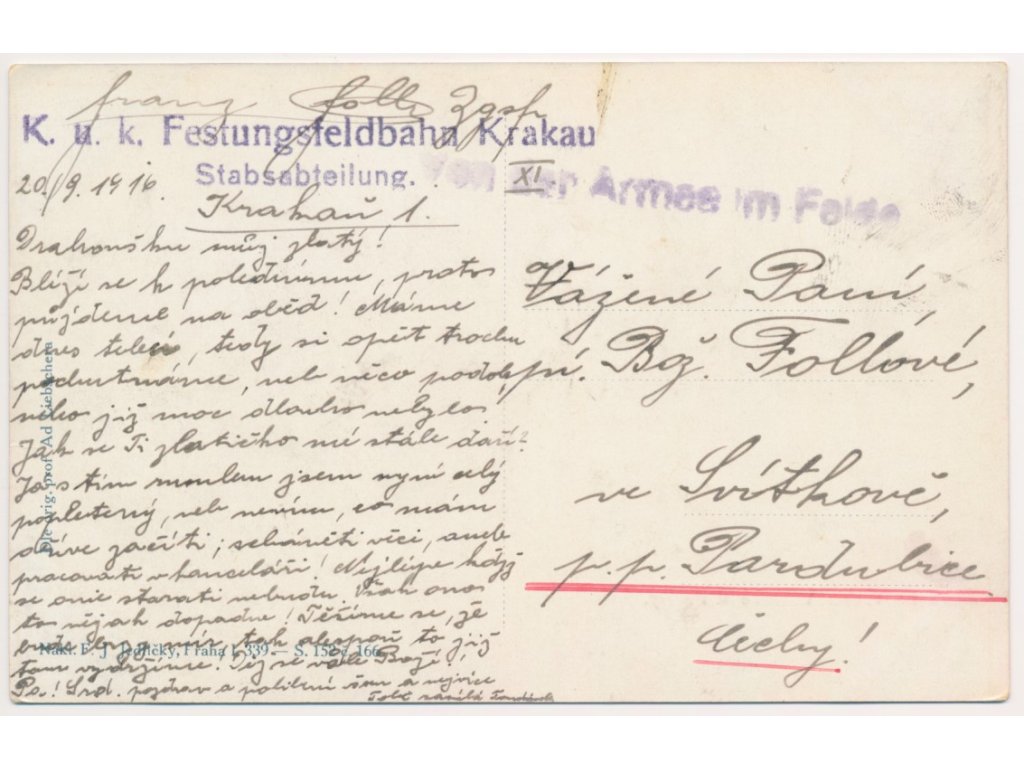 Franz Follz Zgsf
K. u. k. Festungsfeldbahn Krakau
Stabsabteilung.
Von der Armee im Felde
XI.
20/9. 1916.
Krakau 1.
Drahoušku můj zlatý!
Blíží se k polednímu, proto
půjdeme na oběd! Máme
dnes telecí, tedy si opět trochu
pochutnáme, neb něco podob-
ného již moc dlouho nebylo!
Jak se Ti zlatíčko mé stále daří?
Já s tím jsem nyní celý
neb nevím, co mám
dříve začíti; scháněti věci, aneb
pracovati v kanceláři! Nejlépe když
se o nic starati nebudu. Však ono
to nějak dopadne! Těšíme se, že
bude brzy mír, tak alespoň to již
tam vydržíme. Těj se vůle Boží!
Pa! Srd. pozdrav a políbení všem a nejvíce
Tobě zasílá
Vážené Paní,
pí. Bož. Follové,
ve Svítkově,
p. p. Pardubice
Čechy!
Dle orig. prof. Ad Liebschera
Nakl. F. J. Jedličky, Praha I. 339.— S. 152 č. 166.